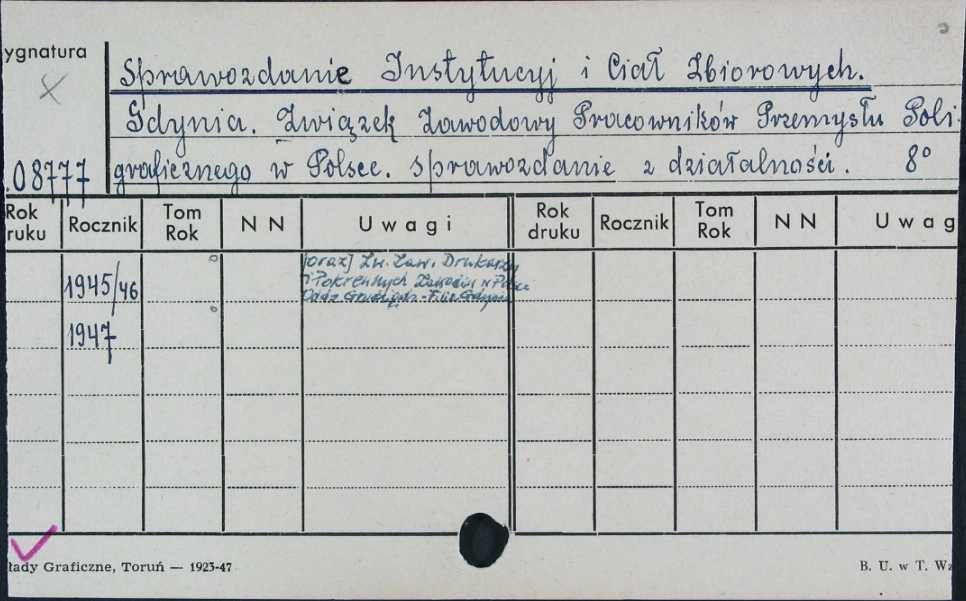 ygnatura
Sprawozdanie Instytucyj i Ciał Zbiorowych.
Gdynia. Związek Zawodowy Pracowników Przemysłu Poli-
.08777 graficznego w Polsce. Sprawozdanie z działalności. 8°
Rok ruku Rocznik Tom Rok N N Uwagi Rok druku Rocznik Tom Rok N N Uwag
[oraz] Zw. Zaw. Drukarzy
i Pokrewnych Zawodów w Polsce
1945/46 Oddz. - Filia Gdynia
1947
łady Graficzne, Toruń — 1923-47 B. U. w T. Wz